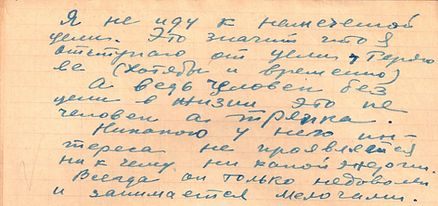 Я не иду к намеченной
цели. Это значит что я
отступаю от цели, теряю
ее (хотябы и временно)
А ведь человек без
цели в жизни это не
человек а тряпка.
Никакого у него ин-
тереса не проявляется
ни к чему ни какой энергии.
Всегда он только недоволен
и занимается мелочами.